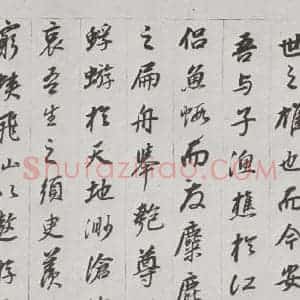 世之雄也而今安
吾与子渔樵於江
侣鱼虾而友麋鹿
之扁舟举匏尊
蜉蝣於天地渺沧
哀吾生之须臾羡
穷挟飞仙以遨游
Shufazhao.com